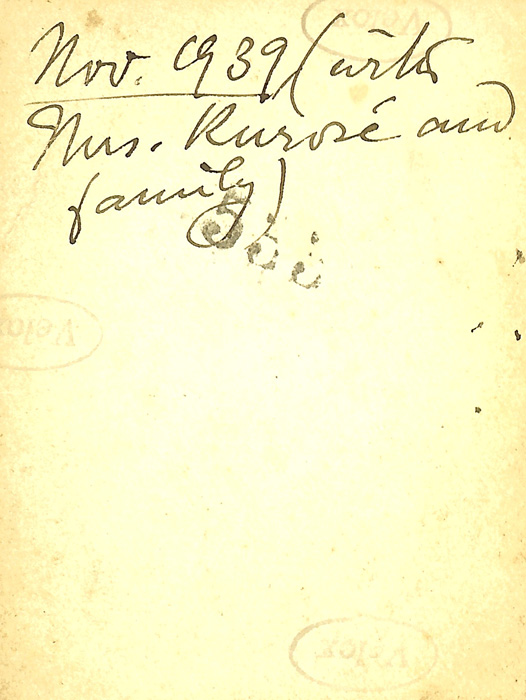 Nov. 1939 (with
Mrs. Kurosé and
family)
Velox
Velox
Velox